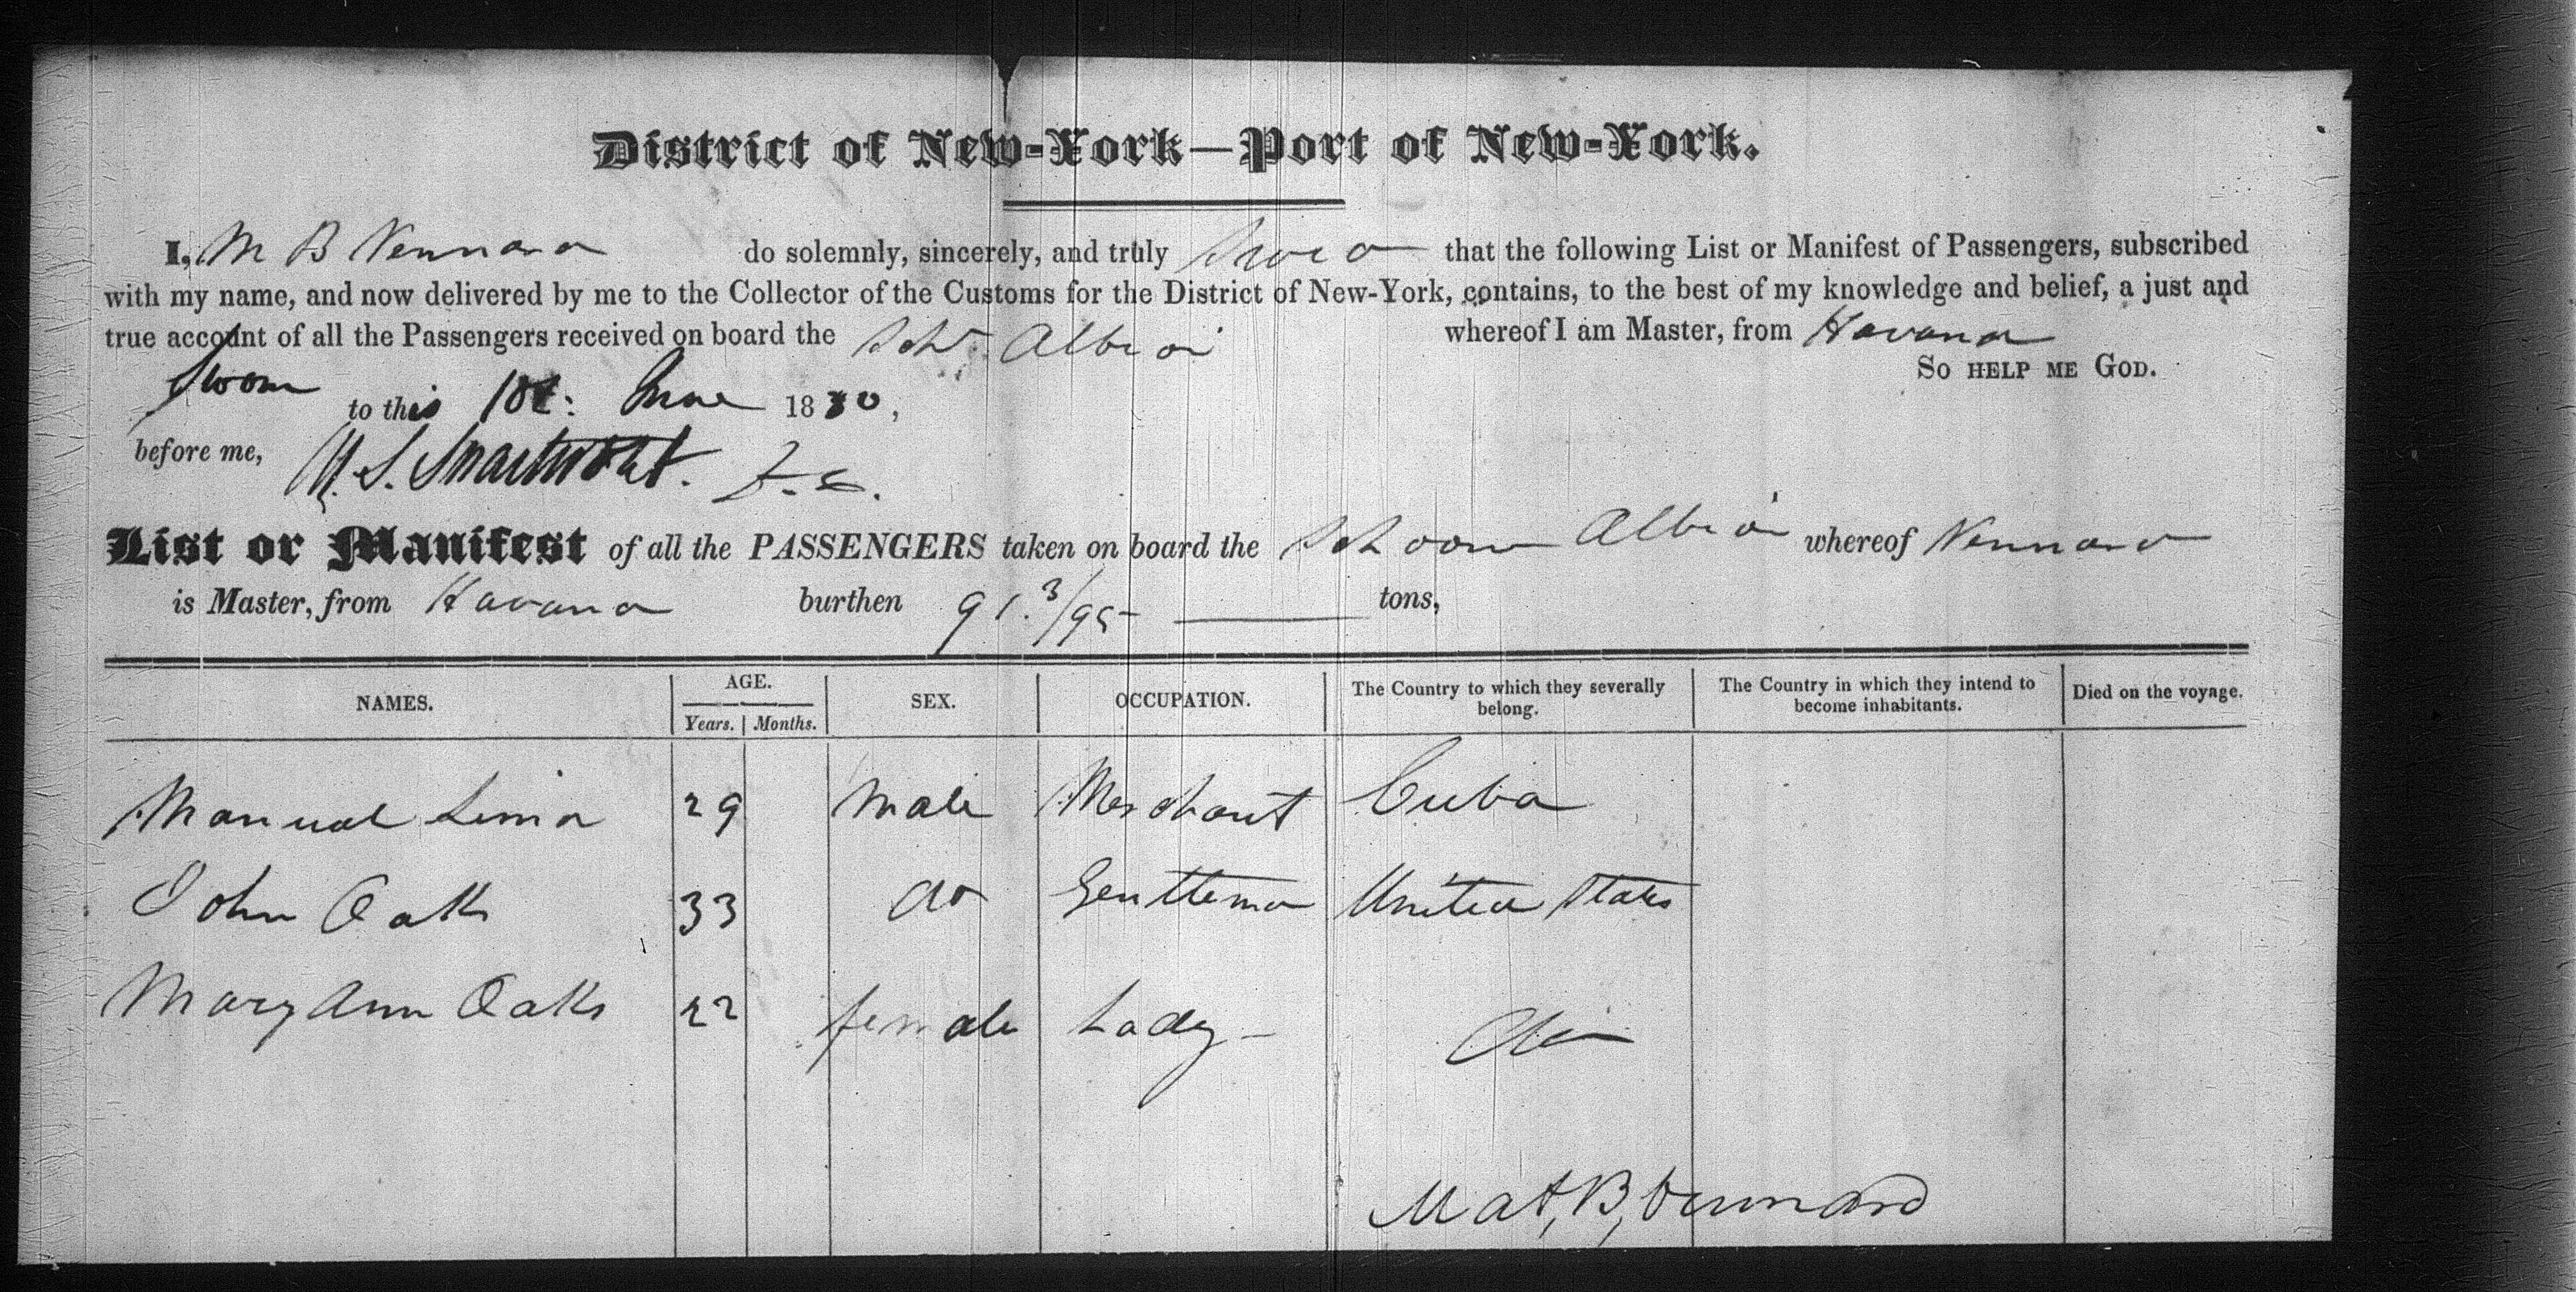 District of New-York—Port of New-York.
I, M B Vennard do solemnly, sincerely, and truly swear that the following List or Manifest of Passengers, subscribed
with my name, and now delivered by me to the Collector of the Customs for the District of New-York, contains, to the best of my knowledge and belief, a just and
true account of all the Passengers received on board the Schr Albion whereof I am Master, from Havana
So help me God.
Sworn to this 1st June 1830,
before me, S. Swartwout. D.C.
List or Manifest of all the PASSENGERS taken on board the Schooner Albion whereof Vennard
is Master, from Havana burthen 91. 3/95 tons,
NAMES. AGE. SEX. OCCUPATION. The Country to which they severally belong. The Country in which they intend to become inhabitants. Died on the voyage.
Years. Months.
Manuel Lima 29 Male Merchant Cuba
John Oaks 33 do Gentleman United States
Mary Ann Oaks 22 female Lady Do
Mat, B, Vennard